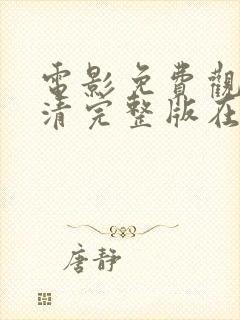 電影免費觀
清完整版在
唐靜